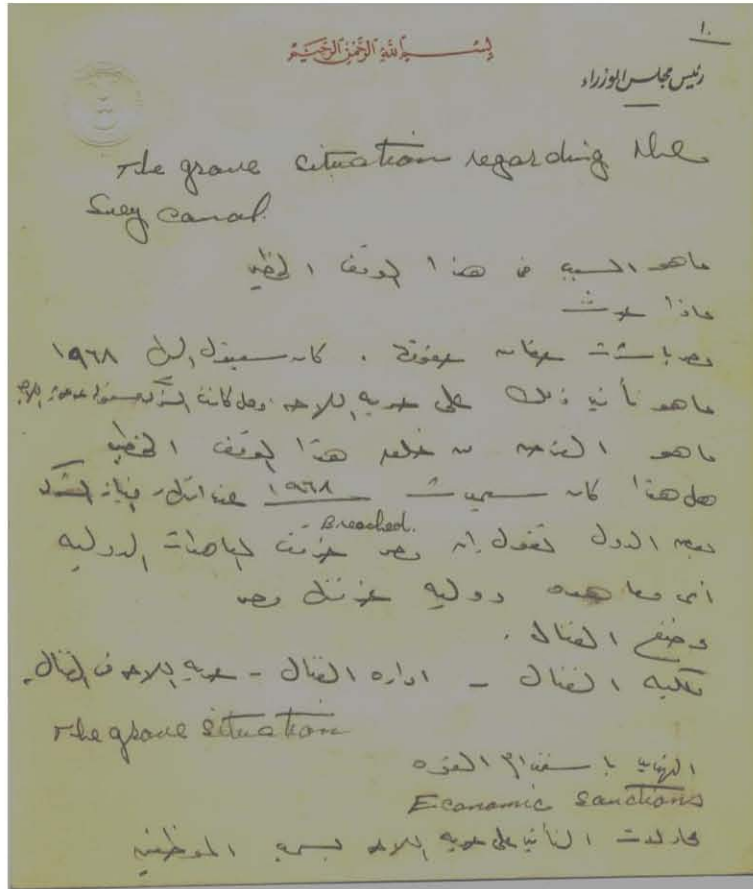 ١٠
بسم الله الرحمن الرحيم
رئيس مجلس الوزراء
The grave situation regarding the
Suez canal.
ماهو السبب فى هذا الموقف الخطير
ماذا حدث
مصر باشرت حقا من حقوقها . كان سينقل اليها ١٩٦٨
ماهو تأثير ذلك على حرية الملاحه وهل كانت الشركه مسئوله عن حرية الملاحه
ماهو الغرض من خلق هذا الموقف الخطير
هل هذا كان سيحدث ١٩٦٨ عند انتهاء امتياز الشركه
Breached.
بعض الدول تقول ان مصر خرقت المعاهدات الدوليه
أى معاهده دوليه خرقتها مصر
وضع القنال .
ملكية القنال - ادارة القنال - حرية الملاحه فى القنال .
The grave situation
التهديد باستخدام القوه
Economic Sanctions
محاولات التأثير على حرية الملاحه بسحب الموظفين